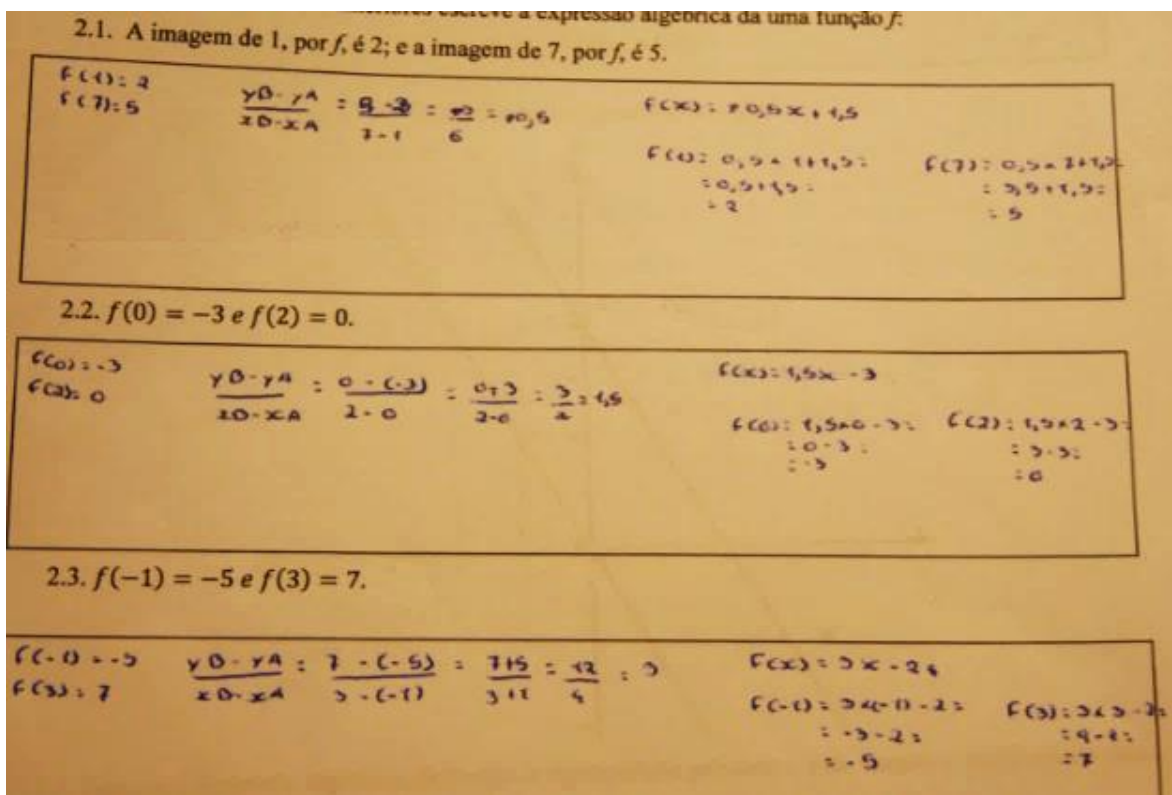 escreve a expressão algébrica da uma função f:
2.1. A imagem de 1, por f, é 2; e a imagem de 7, por f, é 5.
f(1)=2
f(7)=5
yB-yA / xB-xA = 5-2 / 7-1 = / 6 = 0,5
f(x)= 0,5x+1,5
f(1)= 0,5×1+1,5=
=0,5+1,5=
=2
f(7)= 0,5×7+1,5=
= 3,5+1,5=
= 5
2.2. f(0) = −3 e f(2) = 0.
f(0)=-3
f(2)=0
yB-yA / xB-xA = 0-(-3) / 2-0 = 0+3 / 2-0 = 3 / 2 = 1,5
f(x)=1,5x-3
f(0)= 1,5×0-3=
=0-3=
=-3
f(2)= 1,5×2-3=
= 3-3=
=0
2.3. f(−1) = −5 e f(3) = 7.
f(-1)=-5
f(3)=7
yB-yA / xB-xA = 7-(-5) / 3-(-1) = 7+5 / 3+1 = 12 / 4 = 3
f(x)= 3x-2
f(-1)= 3×(-1)-2=
= -3-2=
= -5
f(3)=3×3-2=
=9-2=
=7